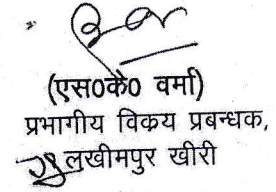 (एस0के0 वर्मा)
प्रभागीय विक्रय प्रबन्धक,
लखीमपुर खीरी